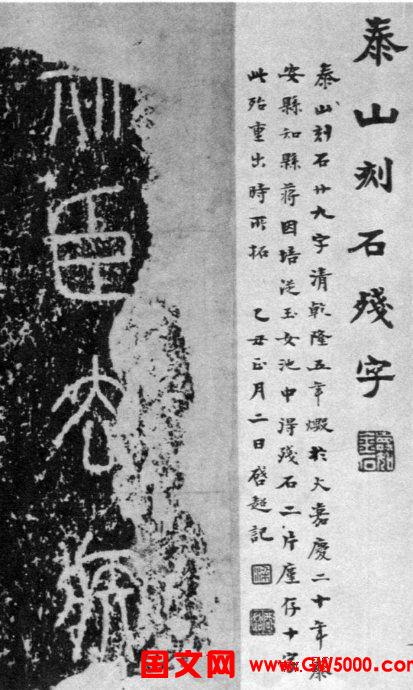 泰山刻石殘字
泰山刻石廿九字清乾隆五年燬於火嘉慶二十年泰
安縣知縣蔣因培從玉女池中得殘石二片廑存十字
此殆重出時所拓 乙丑正月二日啓超記
斯臣去疾
国文网 www.GW5000.com